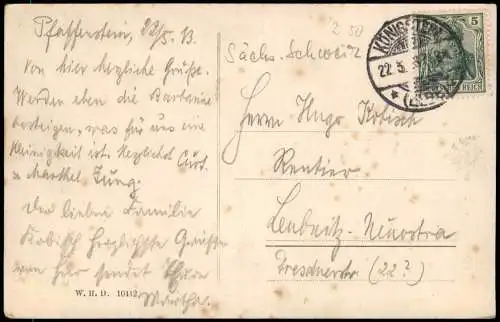 Pfaffenstein, 22/5. 13.
Von hier herzliche Grüße.
Werden eben die Barbarine
besteigen, was für uns eine
Kleinigkeit ist. Herzlichst Curt
u. Jung.
Der lieben Familie
Kobisch herzlichste Grüße
von hier sendet
Martha.
W. H. D. 10412
Sächs. Schweiz
2 50
KÖNIGSTEIN
22.5.
(ELBE)
5
REICH
Herrn Hugo Kobisch
Rentier
Leubnitz-Neuostra
Dresdnerstr. (22?)